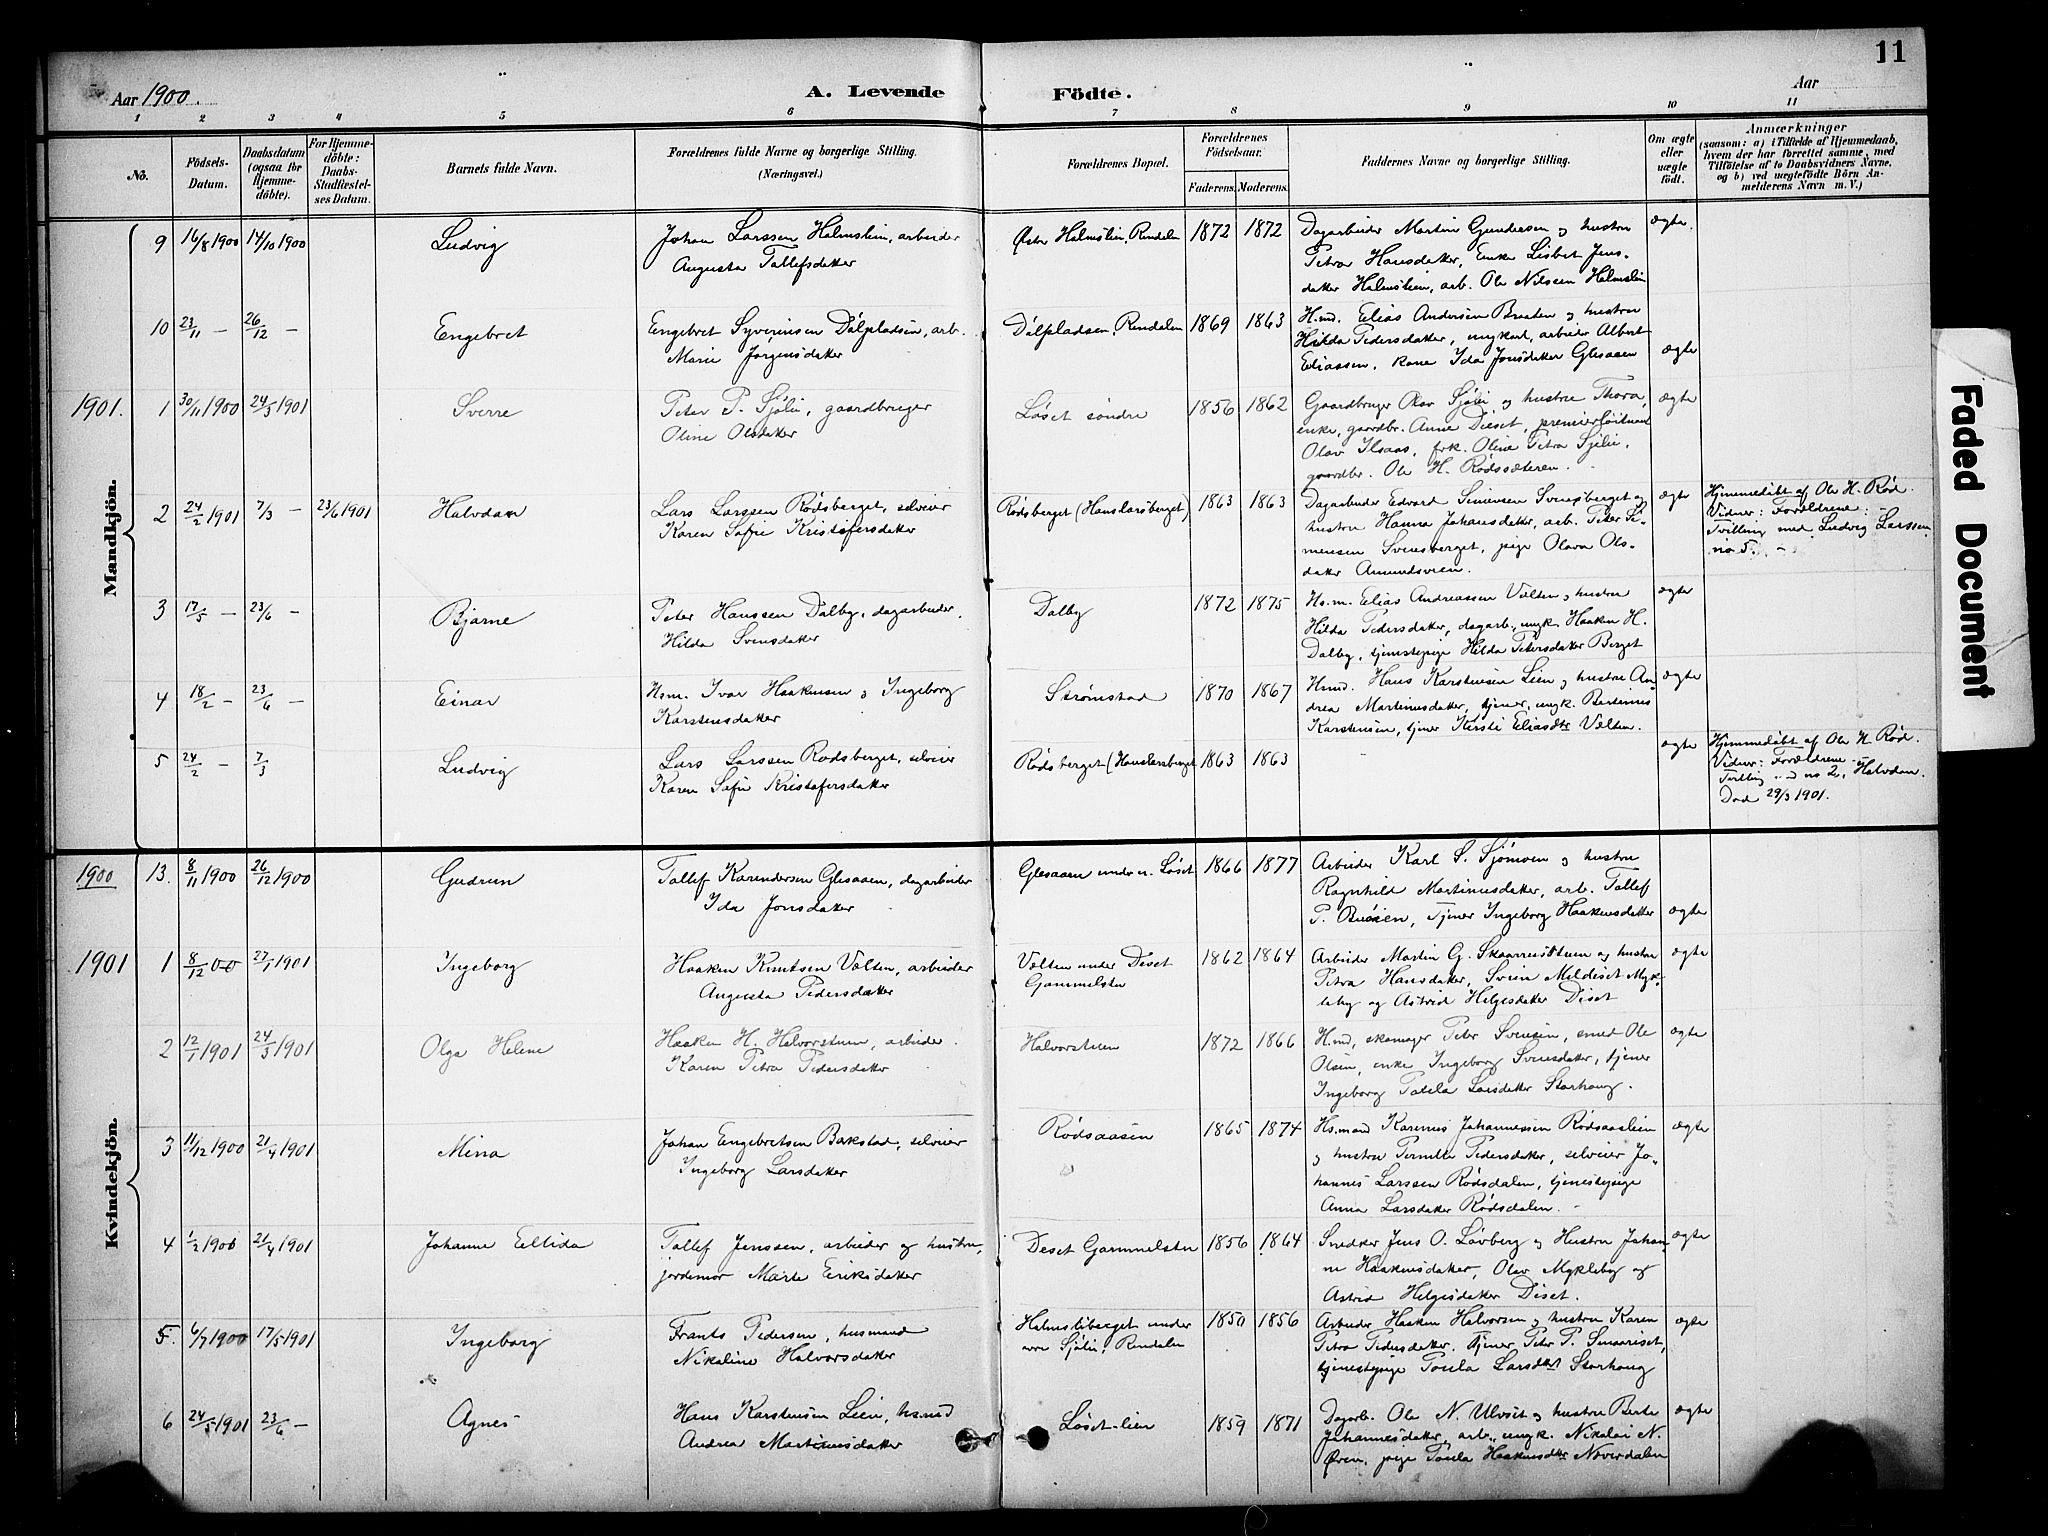 11
Aar 1900.
A. Levende Födte.
Aar
1 2 3 4 5 6 7 8 9 10 11
No.
Födsels-Datum.
Daabsdatum (ogsaa for Hjemme-döbte).
For Hjemme-döbte: Daabs-Stadfæstel-ses Datum.
Barnets fulde Navn.
Forældrenes fulde Navne og borgerlige Stilling.
(Næringsvei.)
Forældrenes Bopæl.
Forældrenes Födselsaar.
Faderens. Moderens.
Faddernes Navne og borgerlige Stilling.
Om ægte eller uægte födt.
Anmærkninger
(saasom: a) i Tilfælde af Hjemmedaab, hvem der har forrettet samme, med Tilföielse af to Daabsvidners Navne, og b) ved uægtefödte Börn Anmelderens Navn m. V.)
Mandkjön.
9 16/8 1900 14/10 1900 Ludvig Johan Larssen Halmslien, arbeider Østre Halmslien, Rendalen 1872 1872 Dagarbeider Martin Gundersen og hustru ægte.
Augusta Tollefsdatter Petra Hansdatter, Enke Lisbet Jens-
datter Halmslien, arb. Ole Nilsen Halmslien
10 23/11 – 26/12 – Engebret Engebret Syverinsen Dølpladsen, arb. Dølpladsen, Rendalen 1869 1863 H.md. Elias Andersen Braaten og hustru
Marie Jørgensdatter Hilda Pedersdatter, ungkarl, arbeider Albert
Eliassen, kone Ida Jonsdatter Glesaaen ægte
1901. 1 30/11 1900 24/3 1901 Sverre Peter P. Sjøli, gaardbruger Løset søndre 1856 1862 Gaardbruger Olav Sjøli og hustru Thora, ægte
Oline Olsdatter enke, gaardbr. Anne Diset, premierløitnant
Olav Ilsaas, frk. Oline Petra Sjøli,
gaardbr. Ole H. Rødssæteren.
2 24/2 1901 7/3 – 23/6 1901 Halvdan Lars Larssen Rødsberget, selveier Rødsberget (Hanslarsberget) 1863 1863 Dagarbeider Edvard Simensen Svensberget og ægte Hjemmedøbt af Ole H. Rød.
Karen Sofie Kristofersdatter hustru Hanna Johansdatter, arb. Peter Si- Vidner: Forældrene. –
mensen Svensberget, pige Olava Ols- Tvilling med Ludvig Larssen,
datter Amundsveen. no 5. –
3 17/5 – 23/6 – Bjarne Peter Hanssen Dalby, dagarbeider. Dalby 1872 1875 Hs.m. Elias Andreassen Vælten og hustru ægte
Hilda Svensdatter Hilda Pedersdatter, dagarb., ungk. Haaken H.
Dalby, tjenestepige Hilda Petersdatter Berget
4 18/2 – 23/6 – Einar Hsm. Ivar Haakensen og Ingeborg Strømstad 1870 1867 Hsmd. Hans Karstensen Lien og hustru An- ægte
Karstensdatter drea Martinusdatter, tjener, ungk. Bertinius
Karstensen, tjener Kirsti Eliasdtr Vælten.
5 24/2 – 7/3 Ludvig Lars Larssen Rødsberget, selveier Rødsberget (Hanslarsberget 1863 1863 ægte Hjemmedøbt af Ole H. Rød.
Karen Sofie Kristofersdatter Vidner: Forældrene –
Tvilling med no 2, Halvdan.
Død 29/3 1901.
Kvindekjön.
1900 13. 8/11 1900 26/12 1900 Gudrun Tollef Karendersen Glesaaen, dagarbeider Glesaaen under n. Løset 1866 1877 Arbeider Karl S. Sjømoen og hustru
Ida Jonsdatter Ragnhild Martinusdatter, arb. Tollef
P. Bueien, Tjener Ingeborg Haakensdatter ægte
1901 1 8/12 00 27/1 1901 Ingeborg Haaken Knutsen Vælten, arbeider Vælten under Diset Gammelstu 1862 1864 Arbeider Martin G. Skaarnestuen og hustru ægte
Augusta Pedersdatter Petra Hansdatter, Svein Mildiset Myk-
leby og Astrid Helgesdatter Diset
2 12/1 1901 24/3 1901 Olga Helene Haaken H. Halvorstuen, arbeider. Halvorstuen 1872 1866 H.md, skomager Peter Svensen, smed Ole ægte
Karen Petra Pedersdatter Olsen, enke Ingeborg Svensdatter, tjener
Ingeborg Tomla Larsdatter Storhaug.
3 11/12 1900 21/4 1901 Mina Johan Engebretsen Bakstad, selveier Rødsaasen 1865 1874 Hsmand Karenius Johannessen Rødsaaslien ægte
Ingeborg Larsdatter og hustru Pernille Pedersdatter, selveier Jo-
hannes Larssen Rødsdalen, tjenestepige
Anna Larsdatter Rødsdalen. –
4 1/2 1900 21/4 1901 Johanne Ellida Tollef Jenssen, arbeider og hustru, Deset Gammelstu 1856 1864 Snedker Jens O. Løvberg og Hustru Johan- ægte
jordemor Marte Eriksdatter ne Haakensdatter, Olav Mykleby og
Astrid Helgesdatter Diset.
5. 6/7 1900 17/5 1901 Ingeborg Frants Pedersen, husmand Halmsliberget under 1850 1856 Arbeider Haaken Halvorsen og hustru Karen ægte
Nikoline Halvorsdatter øvre Sjøli, Rendalen Petra Pedersdatter. Tjener Peter P. Smaariset,
tjenestepige Tomla Larsdtr Storhaug
6 24/5 1901 23/6 – Agnes Hans Karstensen Lien, hsmd Løset-lien 1859 1871 Dagarb. Ole N. Ulvset og hustru Berte ægte
Andrea Martinusdatter Johannesdatter, arb., ungk. Nikolai N.
Øren, pige Tomla Haakensdtr Noverdalen
Faded Document